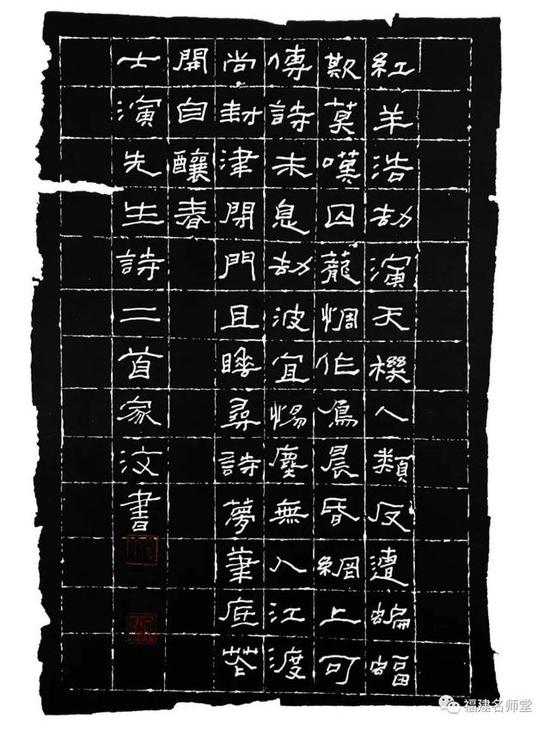 紅羊浩劫演天人類反遭蝙蝠
欺莫嘆囚籠惆作鳥晨昏網上可
傳詩未息劫波宜惕塵無人江渡
尚封津閉門且睡尋詩夢筆底花
開自釀春
士演先生詩二首家汶書
福建名师堂